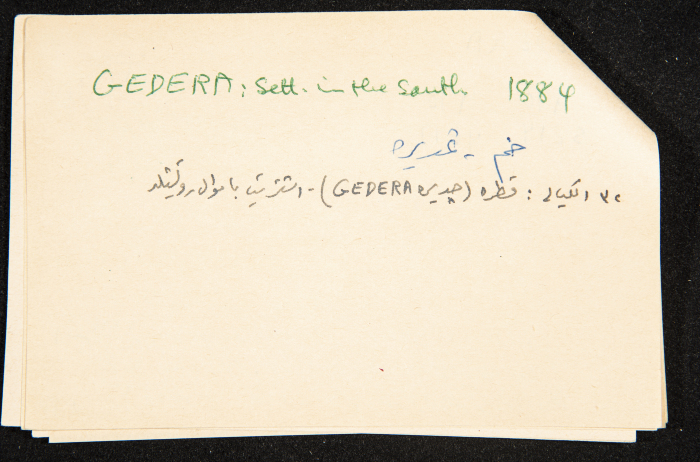 GEDERA: Sett. in the South 1884
خم - غديره
٣٠ الكيالي : قطره (جديره GEDERA) - اشتريت باموال روتشيلد